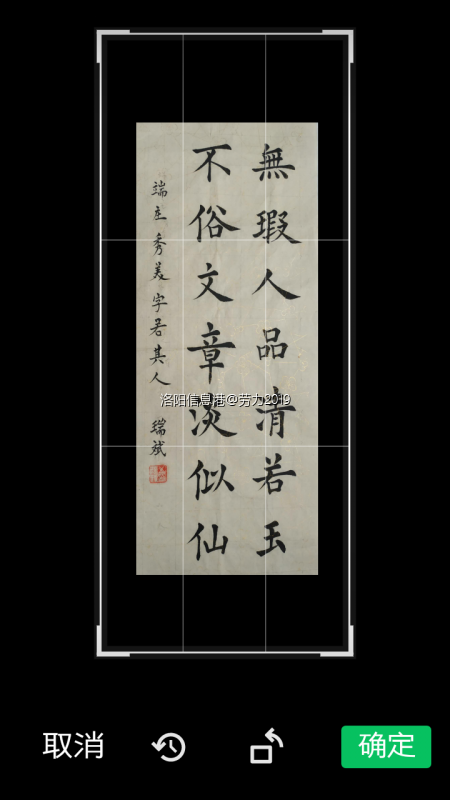 無瑕人品清若玉
不俗文章淡似仙
端庄秀美字若其人
瑞斌
洛阳信息港@劳力2019
取消
确定